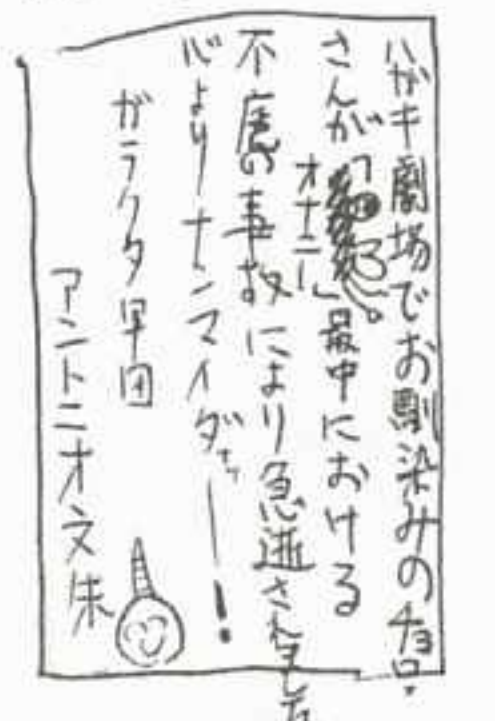 ハガキ劇場でお馴染みのチョロ・
さんが「オナニー」最中における
不慮の事故により急逝されました
心よりナンマイダァー！
ガラクタ軍団
アントニオ文朱